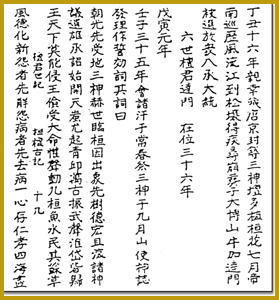 丁丑十六年親幸藏唐京封築三神壇多植桓花七月帝
南巡歷風流江到松壤得疾尋崩葬于大博山牛加達門
被選於衆入承大統
六世檀君達門　在位三十六年
戊寅元年
壬子三十五年會諸汗于常春祭三神于九月山使神誌
發理作誓効詞其詞曰
朝光先受地三神赫世臨桓因出象先樹德宏且深諸神
議遣雄承詔始開天蚩尤起靑邱萬古振武聲淮岱皆歸
王天下莫能侵王儉受大命懽聲動九桓魚水民其蘇草
檀君世紀　桓檀古記　十九
風德化新怨者先解怨病者先去病一心存仁孝四海盡